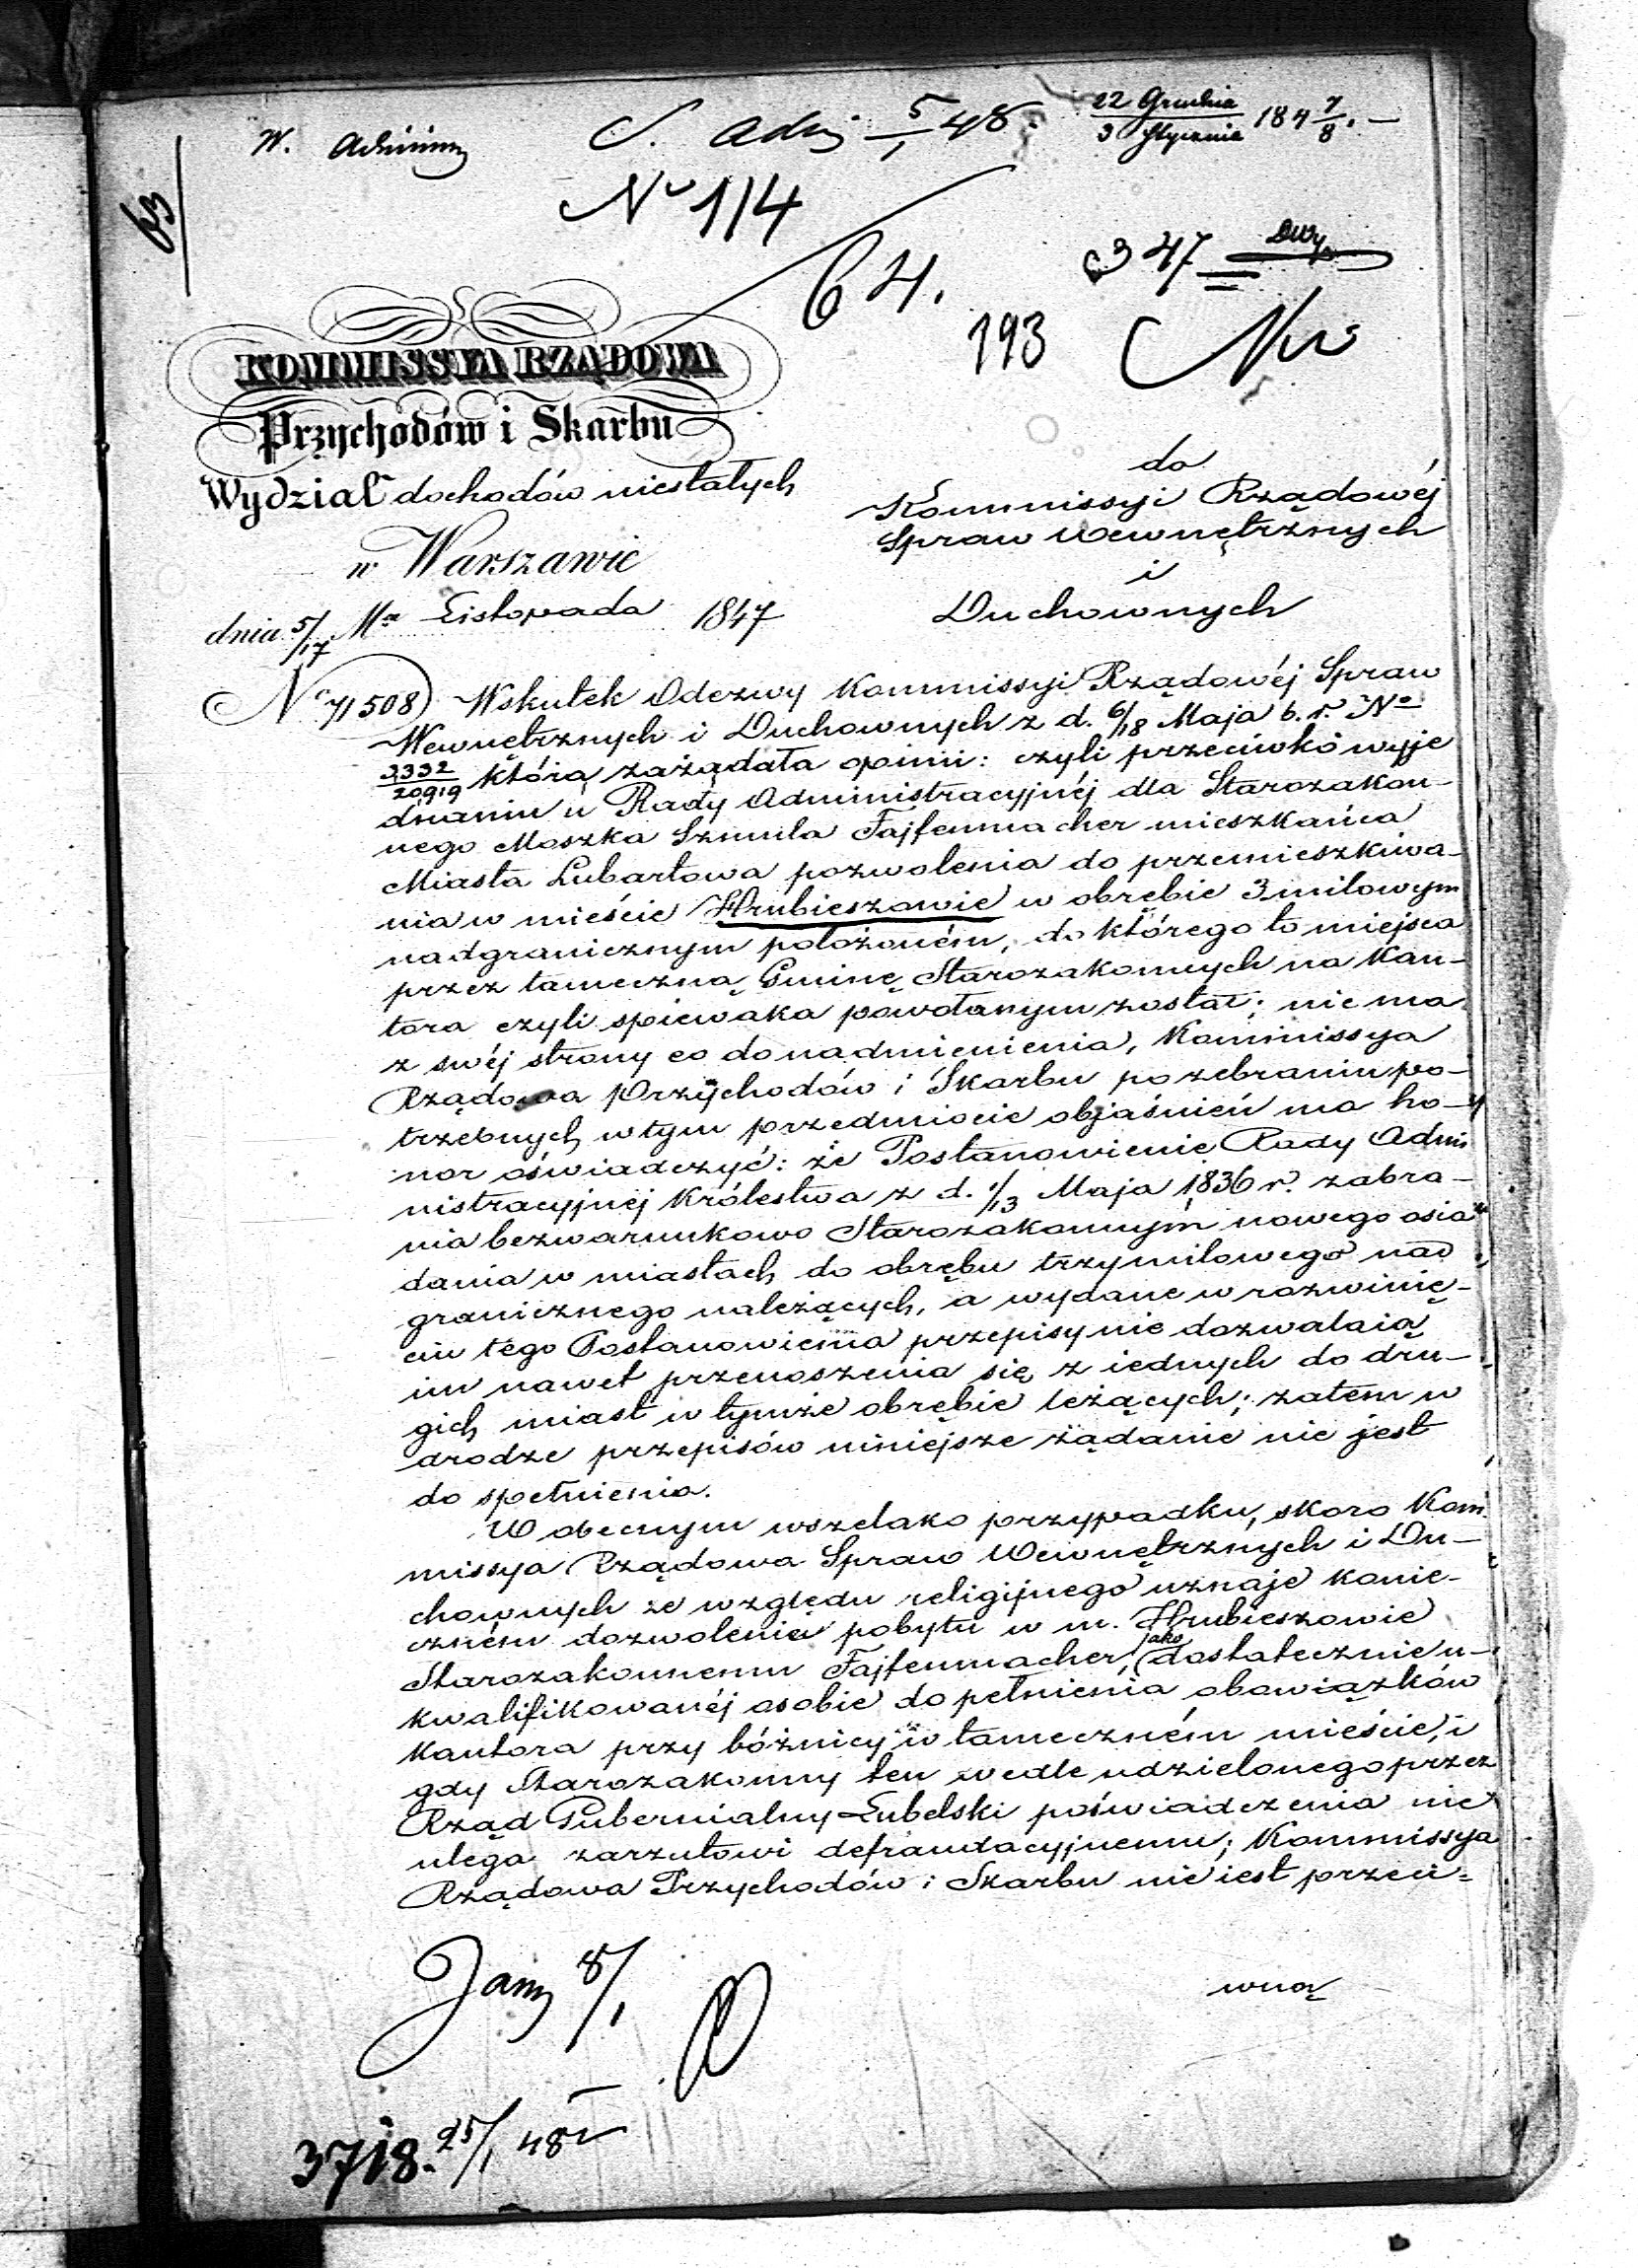 W.
S. Adm 5/1 48.
22 Grudnia
3 Stycznia 184 7/8. —
63
No 114
64.
347
193
KOMMISSYA RZĄDOWA
Przychodów i Skarbu
Wydział dochodów niestałych
w Warszawie
dnia 5/17 Ma Listopada 1847
do
Kommissyi Rządowéj
Spraw Wewnętrznych
i
Duchownych
No 71508 Wskutek Odezwy Kommissyi Rządowéj Spraw
Wewnętrznych i Duchownych z d. 6/18 Maja b. r. No
3332/20919 którą zażądała opinii: czyli przeciwko wyje
dnaniu u Rady Administracyjnéj dla Starozakon-
nego Moszka Szmula Fajfenmacher mieszkańca
Miasta Lubartowa pozwolenia do przemieszkiwa-
nia w mieście Hrubieszowie w obrębie 3 milowym
nadgranicznym położoném, do którego to miejsca
przez tameczną Gminę Starozakonnych na Kan-
tora czyli spiewaka powołanym został; nie ma
z swéj strony co do nadmienienia, Kommissya
Rządowa Przychodów i Skarbu po zebraniu po-
trzebnych w tym przedmiocie objaśnień ma ho-
nor oświadczyć: że Postanowienie Rady Admi
nistracyjnéj Królestwa z d. 1/13 Maja 1836 r. zabra-
nia bezwarunkowo Starozakonnym nowego osia
dania w miastach do obrębu trzymilowego nad
granicznego należących, a wydane w rozwinię-
ciu tego Postanowienia przepisy nie dozwalaią
im nawet przenoszenia się z iednych do dru-
gich miast w tymże obrębie leżących; zatem w
drodze przepisów niniejsze żądanie nie jest
do spełnienia.
W obecnym wszelako przypadku, skoro Kom
missya Rządowa Spraw Wewnętrznych i Du-
chownych ze względu religijnego uznaje konie-
czném dozwolenie pobytu w m. Hrubieszowie
Starozakonnemu Fajfenmacher jako dostatecznie u-
kwalifikowanéj osobie do pełnienia obowiązków
Kantora przy bóżnicy w tameczném mieście, i
gdy Starozakonny ten wedle udzielonego przez
Rząd Gubernialny Lubelski poświadczenia nie
ulega zarzutowi defraudacyjnemu; Kommissya
Rządowa Przychodów i Skarbu nie iest przeci=
wną
8/1
3718. 25/1 48